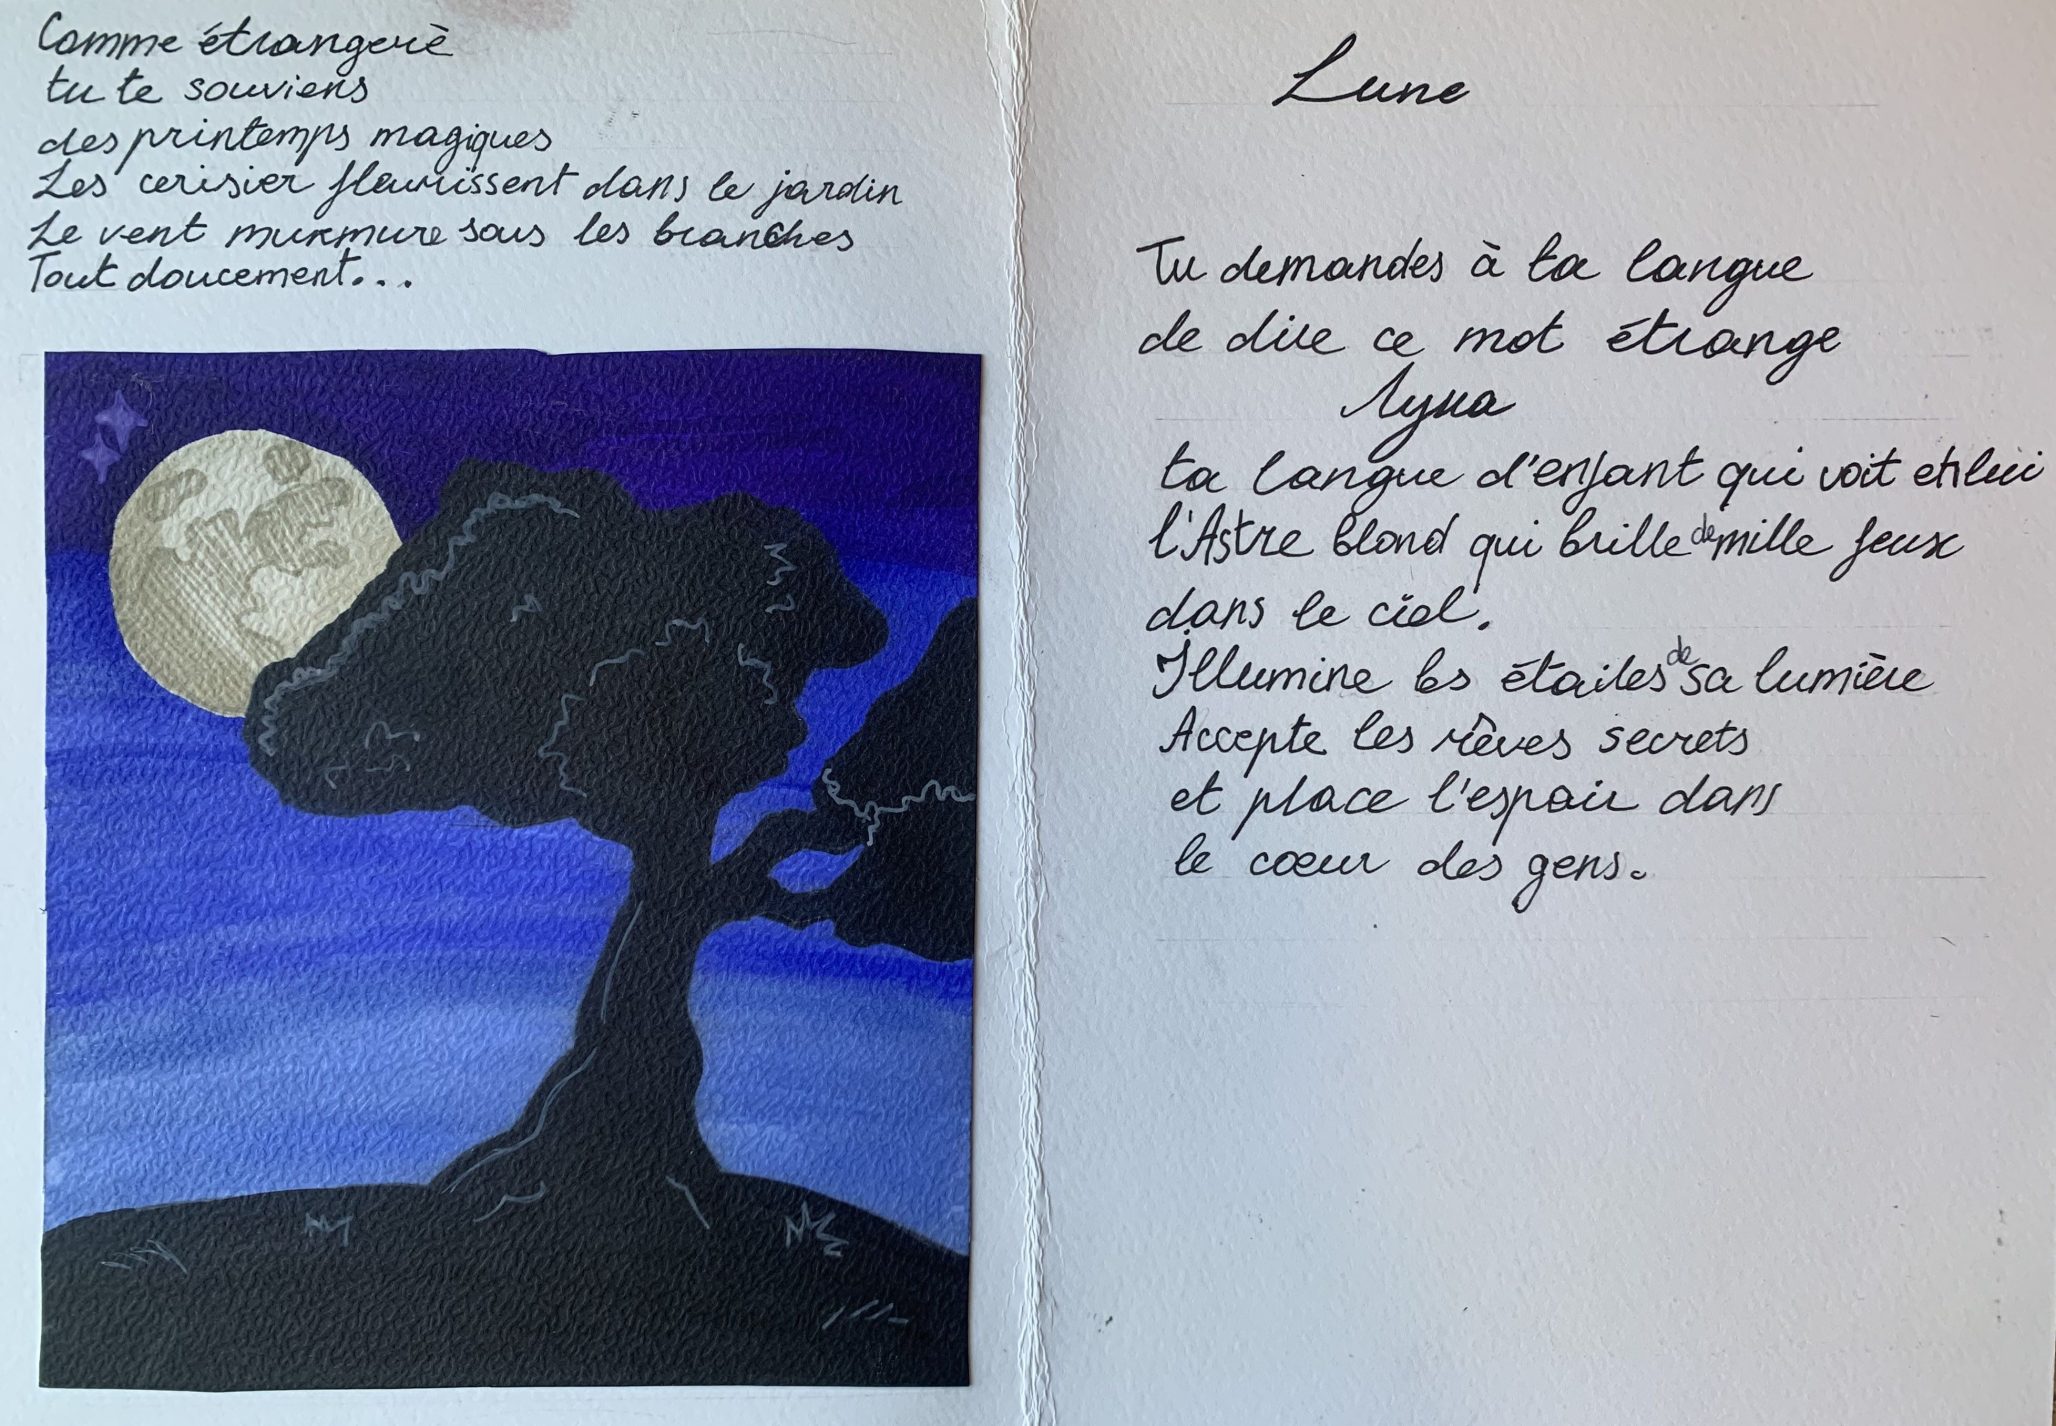 Comme étrangerè
tu te souviens
des printemps magiques
Les cerisier fleurissent dans le jardin
Le vent murmure sous les branches
Tout doucement...
Lune
Tu demandes à ta langue
de dire ce mot étrange
Луна
ta langue d'enfant qui voit en lui
l'Astre blond qui brille de mille feux
dans le ciel.
Illumine les étoiles de sa lumière
Accepte les rêves secrets
et place l'espoir dans
le cœur des gens.